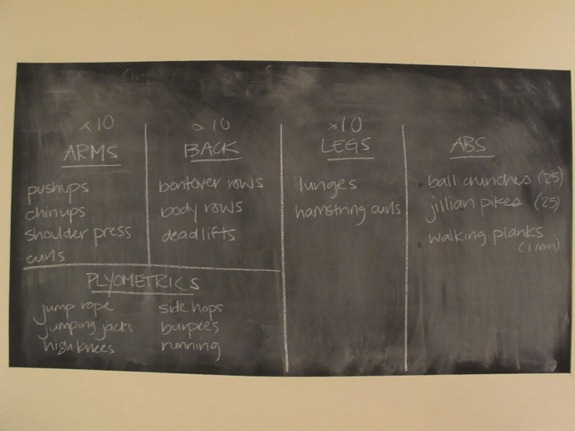 x10
ARMS
pushups
chinups
shoulder press
curls
x10
BACK
bentover rows
body rows
deadlifts
x10
LEGS
lunges
hamstring curls
ABS
ball crunches (25)
jillian pikes (25)
walking planks
(1 min)
PLYOMETRICS
jump rope
jumping jacks
high knees
side hops
burpees
running